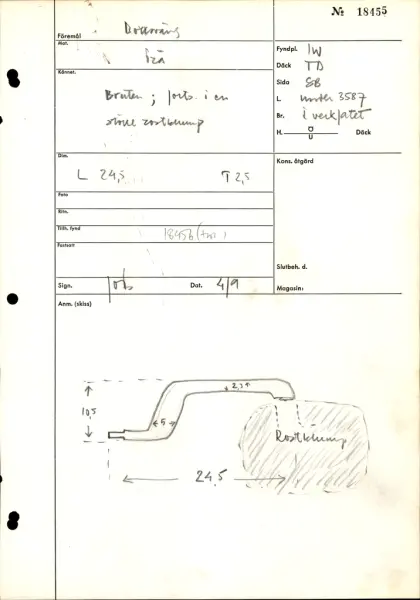 № 18455
Föremål
Mat.
Trä
Kännet.
Bruten; forts. i en
större rostklump
Fyndpl. IW
Däck TD
Sida SB
L 3587
Br. i verkstatet
H. Ö
U
Däck
Dim.
L 24,5 T 2,5
Kons. åtgärd
Foto
Ritn.
Tillh. fynd 18456
Fastsatt
Slutbeh. d.
Sign. Dat. 4/9
Magasin:
Anm. (skiss)
10,5
5
2,3
Rostklump
24.5